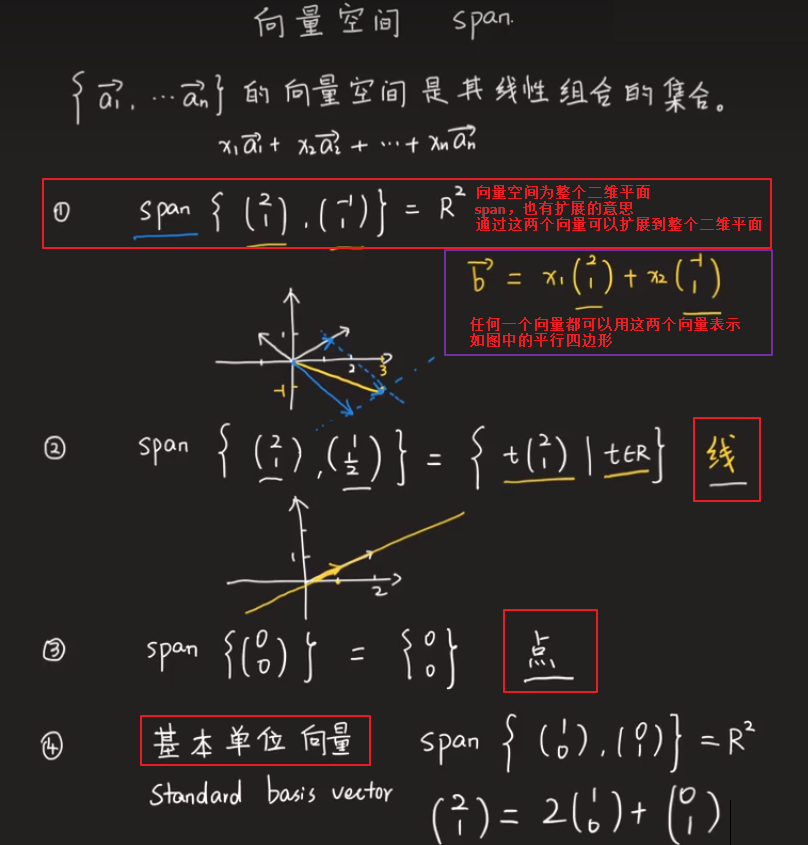 向量空间 span.
{ a₁, … aₙ } 的向量空间是其线性组合的集合。
x₁a₁ + x₂a₂ + … + xₙaₙ
① span { (2 1), (-1 1) } = R²
向量空间为整个二维平面
span，也有扩展的意思
通过这两个向量可以扩展到整个二维平面
b = x₁(2 1) + x₂(-1 1)
任何一个向量都可以用这两个向量表示
如图中的平行四边形
1
2 3
-1
② span { (2 1), (1 1/2) } = { t(2 1) | t∈R } 线
1
2
③ span { (0 0) } = { 0 0 } 点
④ 基本单位向量 span { (1 0), (0 1) } = R²
Standard basis vector
(2 1) = 2(1 0) + (0 1)